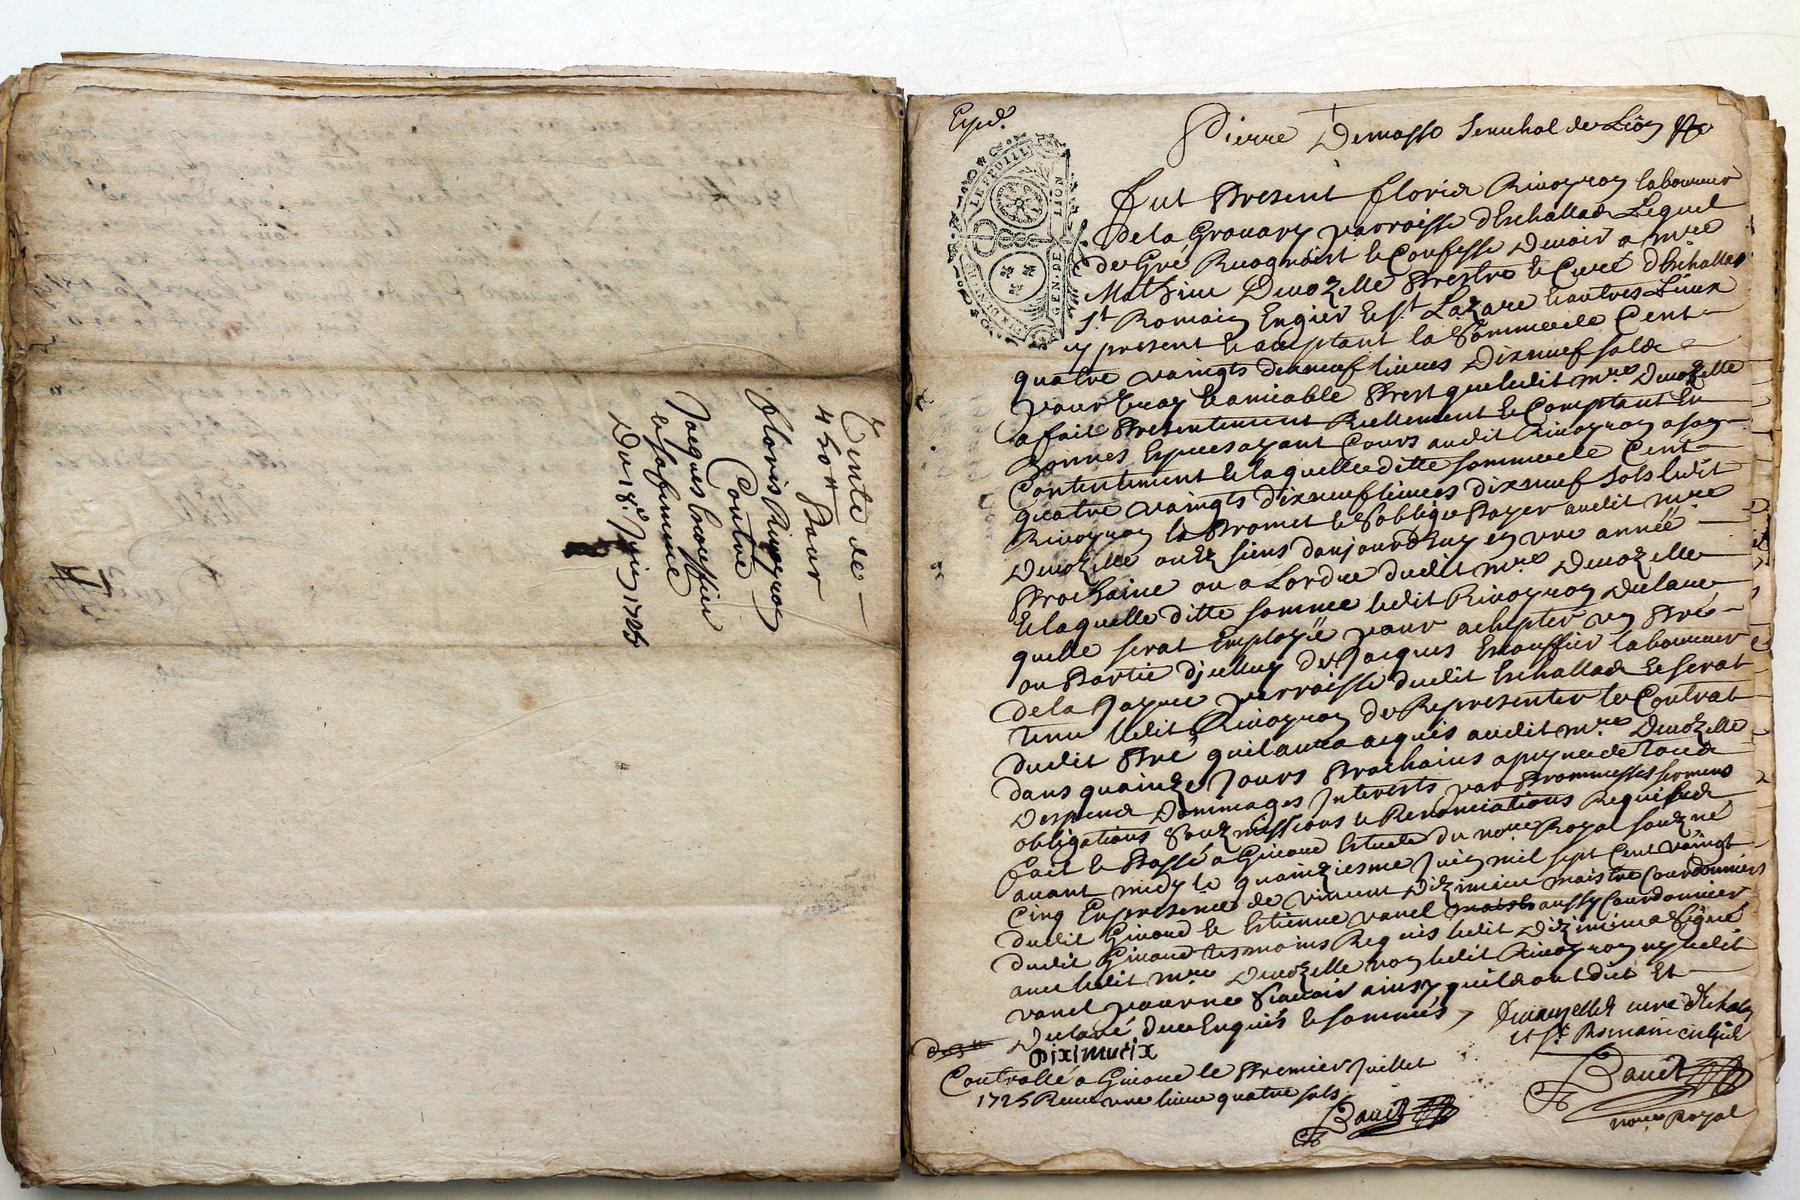 Vente de
450 ll pour
floris Rivoyron
Contre
Jacques Escoffier
et sa femme
Du 18e Juin 1725
Exped.
Pierre Demasso Senechal de Lion
LE FEUILLE
GEN. DE LION
fut Present floris Rivoyron laboureur
de la Grouary parroisse dEschallas Lequel
de Gré Recognoist et Confesse Devoir a Mre
Mathieu Devozelle Prestre et Curé dEschallas
St Romain Engier et St Lazare et autres Lieux
cy present et acceptant la Somme de Cent
quatre vaingts dixneuf livres dixneuf sols
pour vray et amiable Prest que ledit Mre Devozelle
a fait Presentement Reellement et Comptant En
Bonnes Especes ayant Cours audit Rivoyron a son
Contentement et laquelle ditte somme de Cent
quatre vaingts dixneuf livres dixneuf sols ledit
Rivoyron la Promet et soblige Payer audit Mre
Devozelle ou ez siens daujourdhuy en une année
Prochaine ou a Lordre dudit Mre Devozelle
Et laquelle ditte somme ledit Rivoyron declare
quelle serat Employée pour achepter un Pré
ou Partie dicelluy de Jacques Escoffier laboureur
de la parroisse dudit Eschallas et serat
tenu ledit Rivoyron de Representer le Contrat
dudit Pré quil aura acquis audit Mre Devozelle
dans quainze Jours Prochains a peyne de tous
Despens Dommages Interests par Prommesses sermens
obligations Soubzmissions et Renonciations Requises
fait et Passé a Givors Estude du nore Royal soubzné
avant midy le quainziesme Juin mil sept Cent vaingt
Cinq En presence de vincent Dizimieu maistre Cordonniers
dudit Givors et Estienne vanel maistre aussy Courdonnier
dudit Givors tesmoins Requis ledit Dizimieu a signé
avec ledit Mre Devozelle non ledit Rivoyron ny ledit
vanel pour ne Scavoir ainsy quils ont dict Et
Declaré de ce Enquis et sommés
Devauzelles curé dEchalas
et St Romain en Gié
Diximieux
Controllé a Givors le Premier Juillet
1725 Receu une livre quatre sols
nore Royal